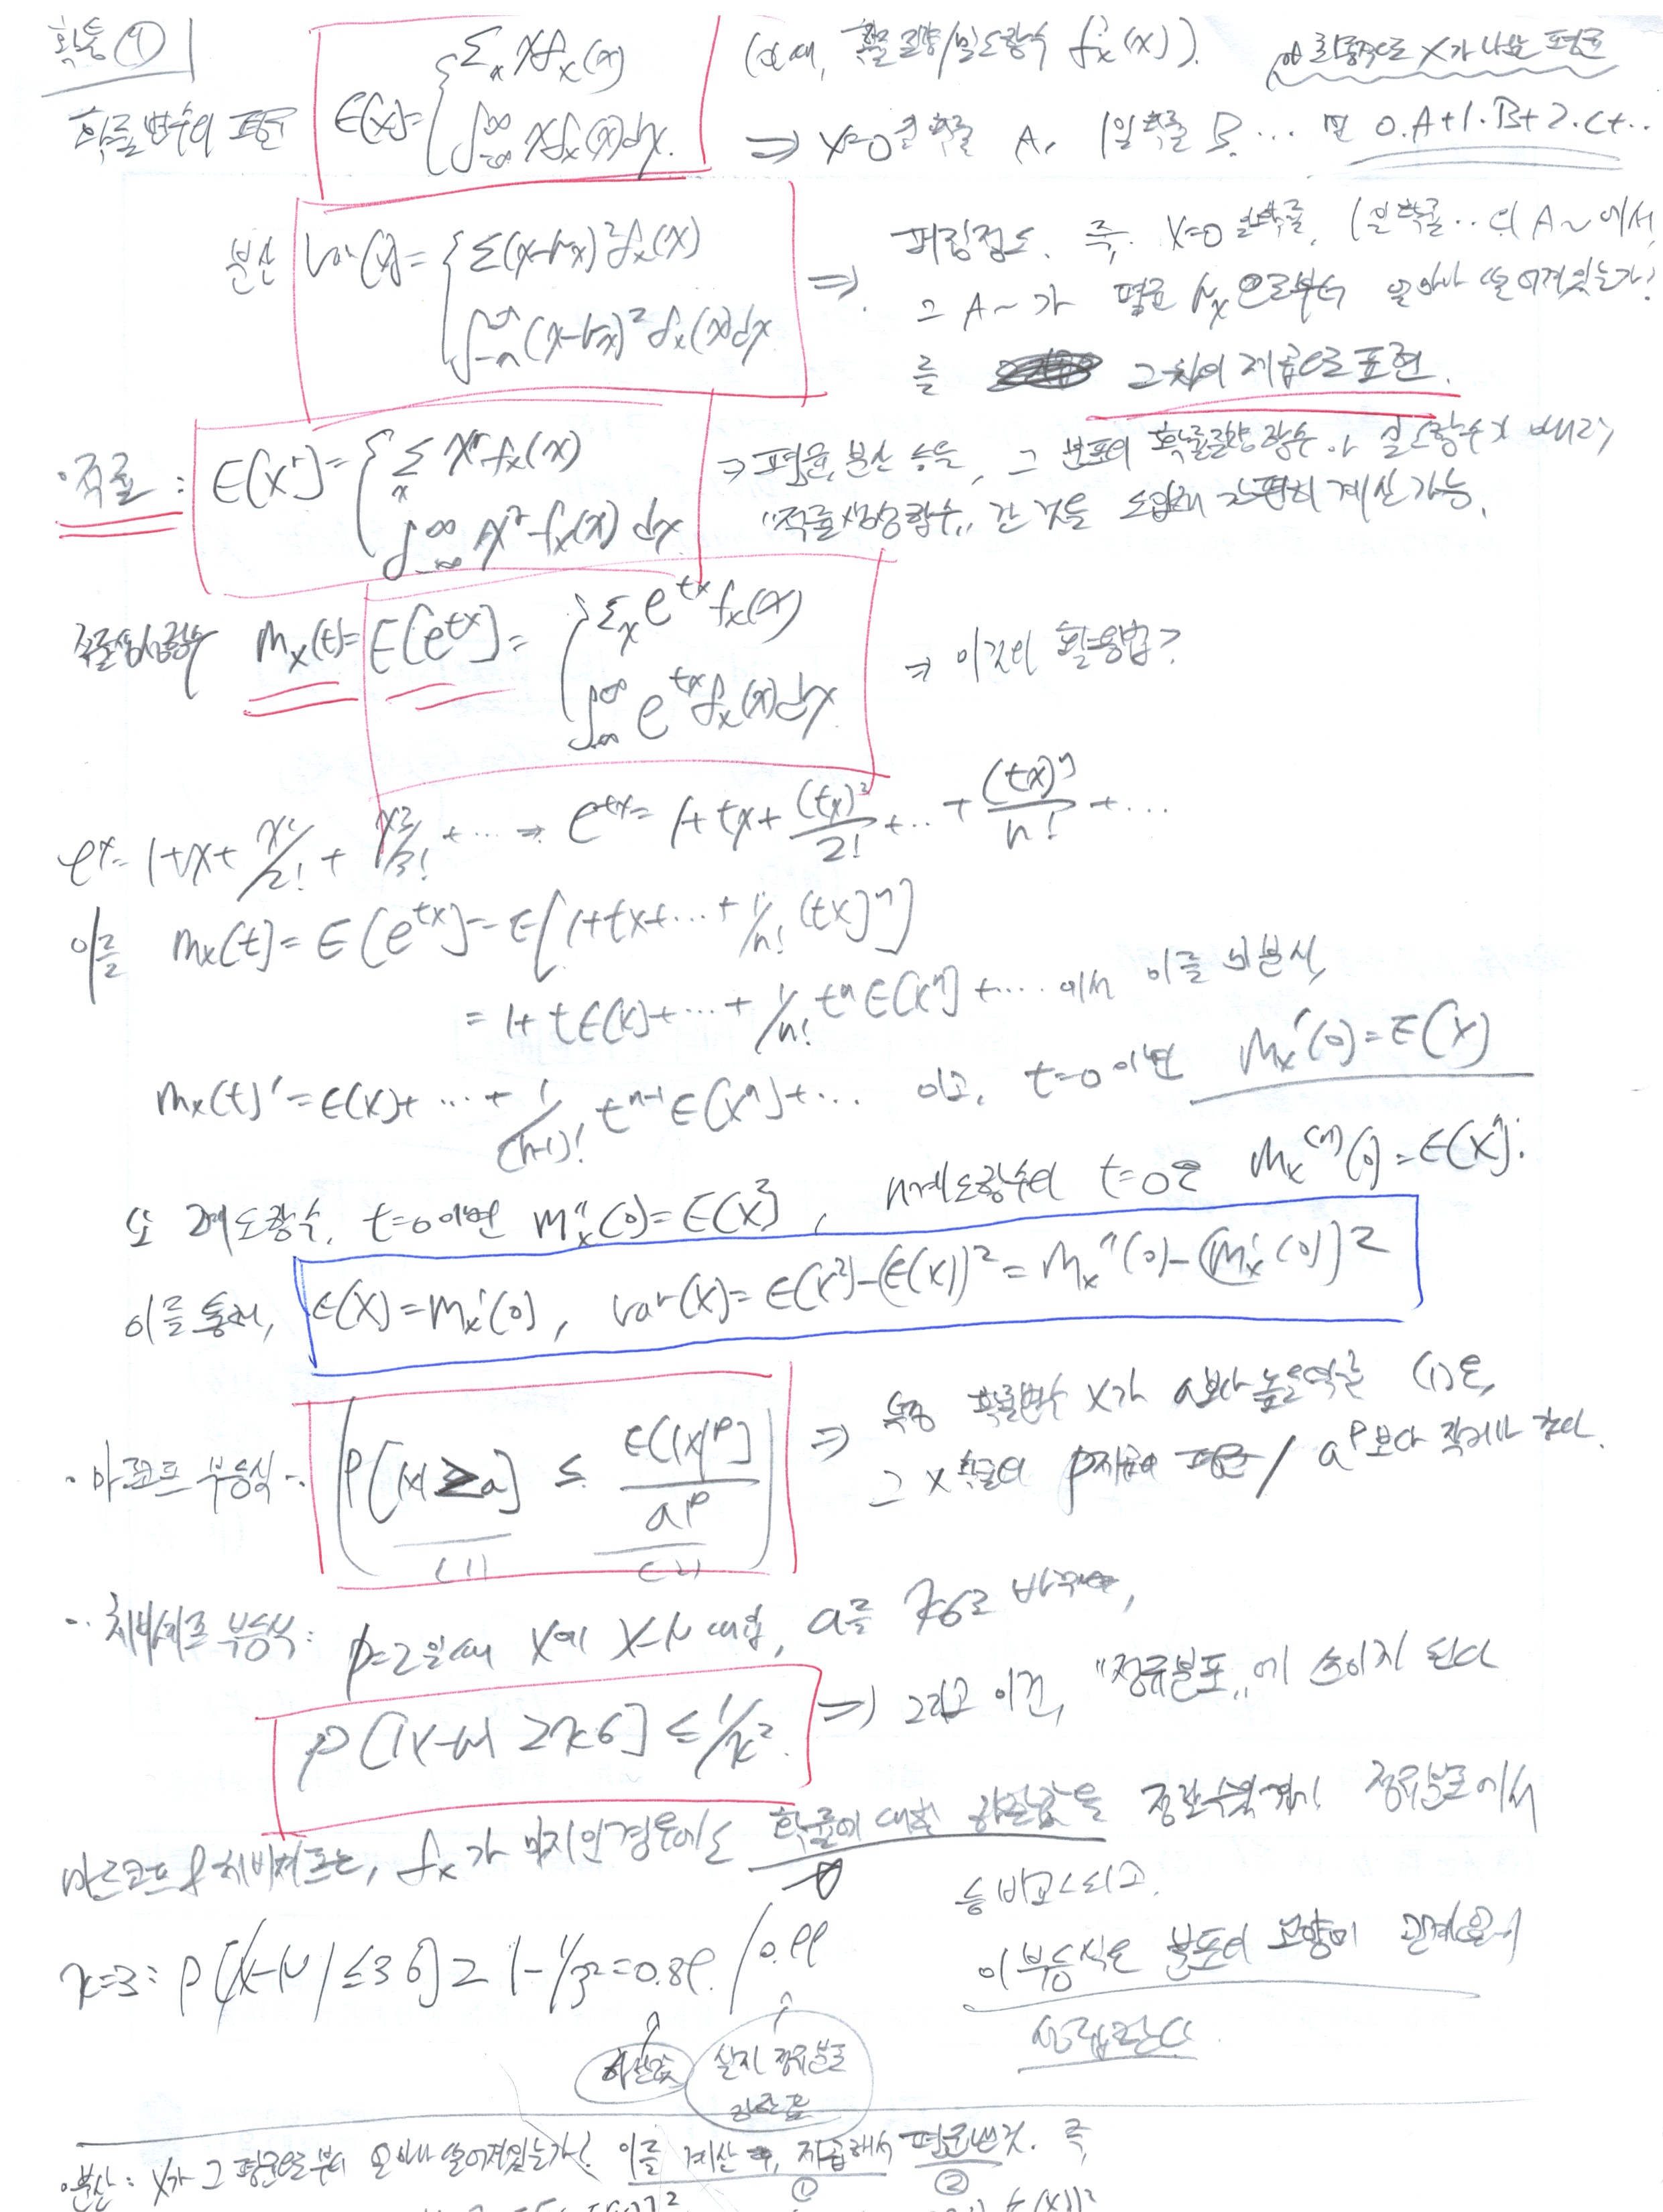 확통 ①
확률변수의 평균 E(X)= { Σₓ x fₓ(x) (이때, 확률질량/밀도함수 fₓ(x)).
∫_{-∞}^{∞} x fₓ(x)dx. ⇒ X=0일 확률 A, 1일 확률 B. ... 면 0·A+1·B+2·C+..
분산 Var(X)= { Σ(x-μₓ)² fₓ(x)
∫_{-∞}^{∞} (x-μₓ)² fₓ(x)dx ⇒ 퍼짐정도. 즉, X=0일 확률, 1일 확률..의 A~에서,
그 A~가 평균 μₓ으로부터 얼마나 떨어져있는가?
를 그 차이 제곱으로 표현.
·적률: E[Xʳ]= { Σₓ xʳ fₓ(x)
∫_{-∞}^{∞} xʳ fₓ(x) dx ⇒ 평균, 분산 등을, 그 분포의 확률질량함수나 밀도함수
"적률생성함수" 간 것을 도입해 간편히 계산 가능.
적률생성함수 mₓ(t)=E[e^{tx}]= { Σₓ e^{tx} fₓ(x)
∫_{-∞}^{∞} e^{tx} fₓ(x)dx ⇒ 이것의 활용법?
eˣ=1+x+x²/2!+x³/3!+... ⇒ e^{tx}=1+tx+(tx)²/2!+...+(tx)ⁿ/n!+...
이를 mₓ(t)=E[e^{tx}]=E[1+tx+...+1/n!(tx)ⁿ]
=1+tE(X)+...+1/n! tⁿE(Xⁿ)+.... 에서 이를 미분시,
mₓ(t)'=E(X)+...+1/(n-1)! tⁿ⁻¹E(Xⁿ)+... 이고, t=0이면 mₓ'(0)=E(X)
또 2계도함수, t=0이면 mₓ''(0)=E(X²), n계도함수의 t=0은 mₓ⁽ⁿ⁾(0)=E(Xⁿ).
이를 통해, E(X)=mₓ'(0), Var(X)=E(X²)-(E(X))²=mₓ''(0)-(mₓ'(0))²
·마코프 부등식·· (P[|X|≥a] ≤ E(|X|ᵖ)/aᵖ) ⇒ 특정 확률변수 X가 a보다 높을 확률 (1)은,
(1) (2) 그 X 확률의 p제곱의 평균/aᵖ보다 작거나 같다.
·· 체비셰프 부등식: p=2일때 X에 X-μ 대입, a를 kσ로 바꾸면,
P[|X-μ|≥kσ]≤1/k². ⇒ 그리고 이건, "정규분포"에 쓰이지 된다
마르코프 & 체비셰프는, fₓ가 미지인 경우에도 확률에 대한 하한값을 정규분포에서
등 비교되고.
k=3: P[|X-μ|≤3σ]≥1-1/3²=0.89. / 0.99 이 부등식은 분포의 모양에 관계없이
성립한다.
하한값 실제 정규분포
·분산: X가 그 평균으로부터 얼마나 떨어져있는가? 이를 계산 후, 제곱해서 평균낸것. 즉,
① ②